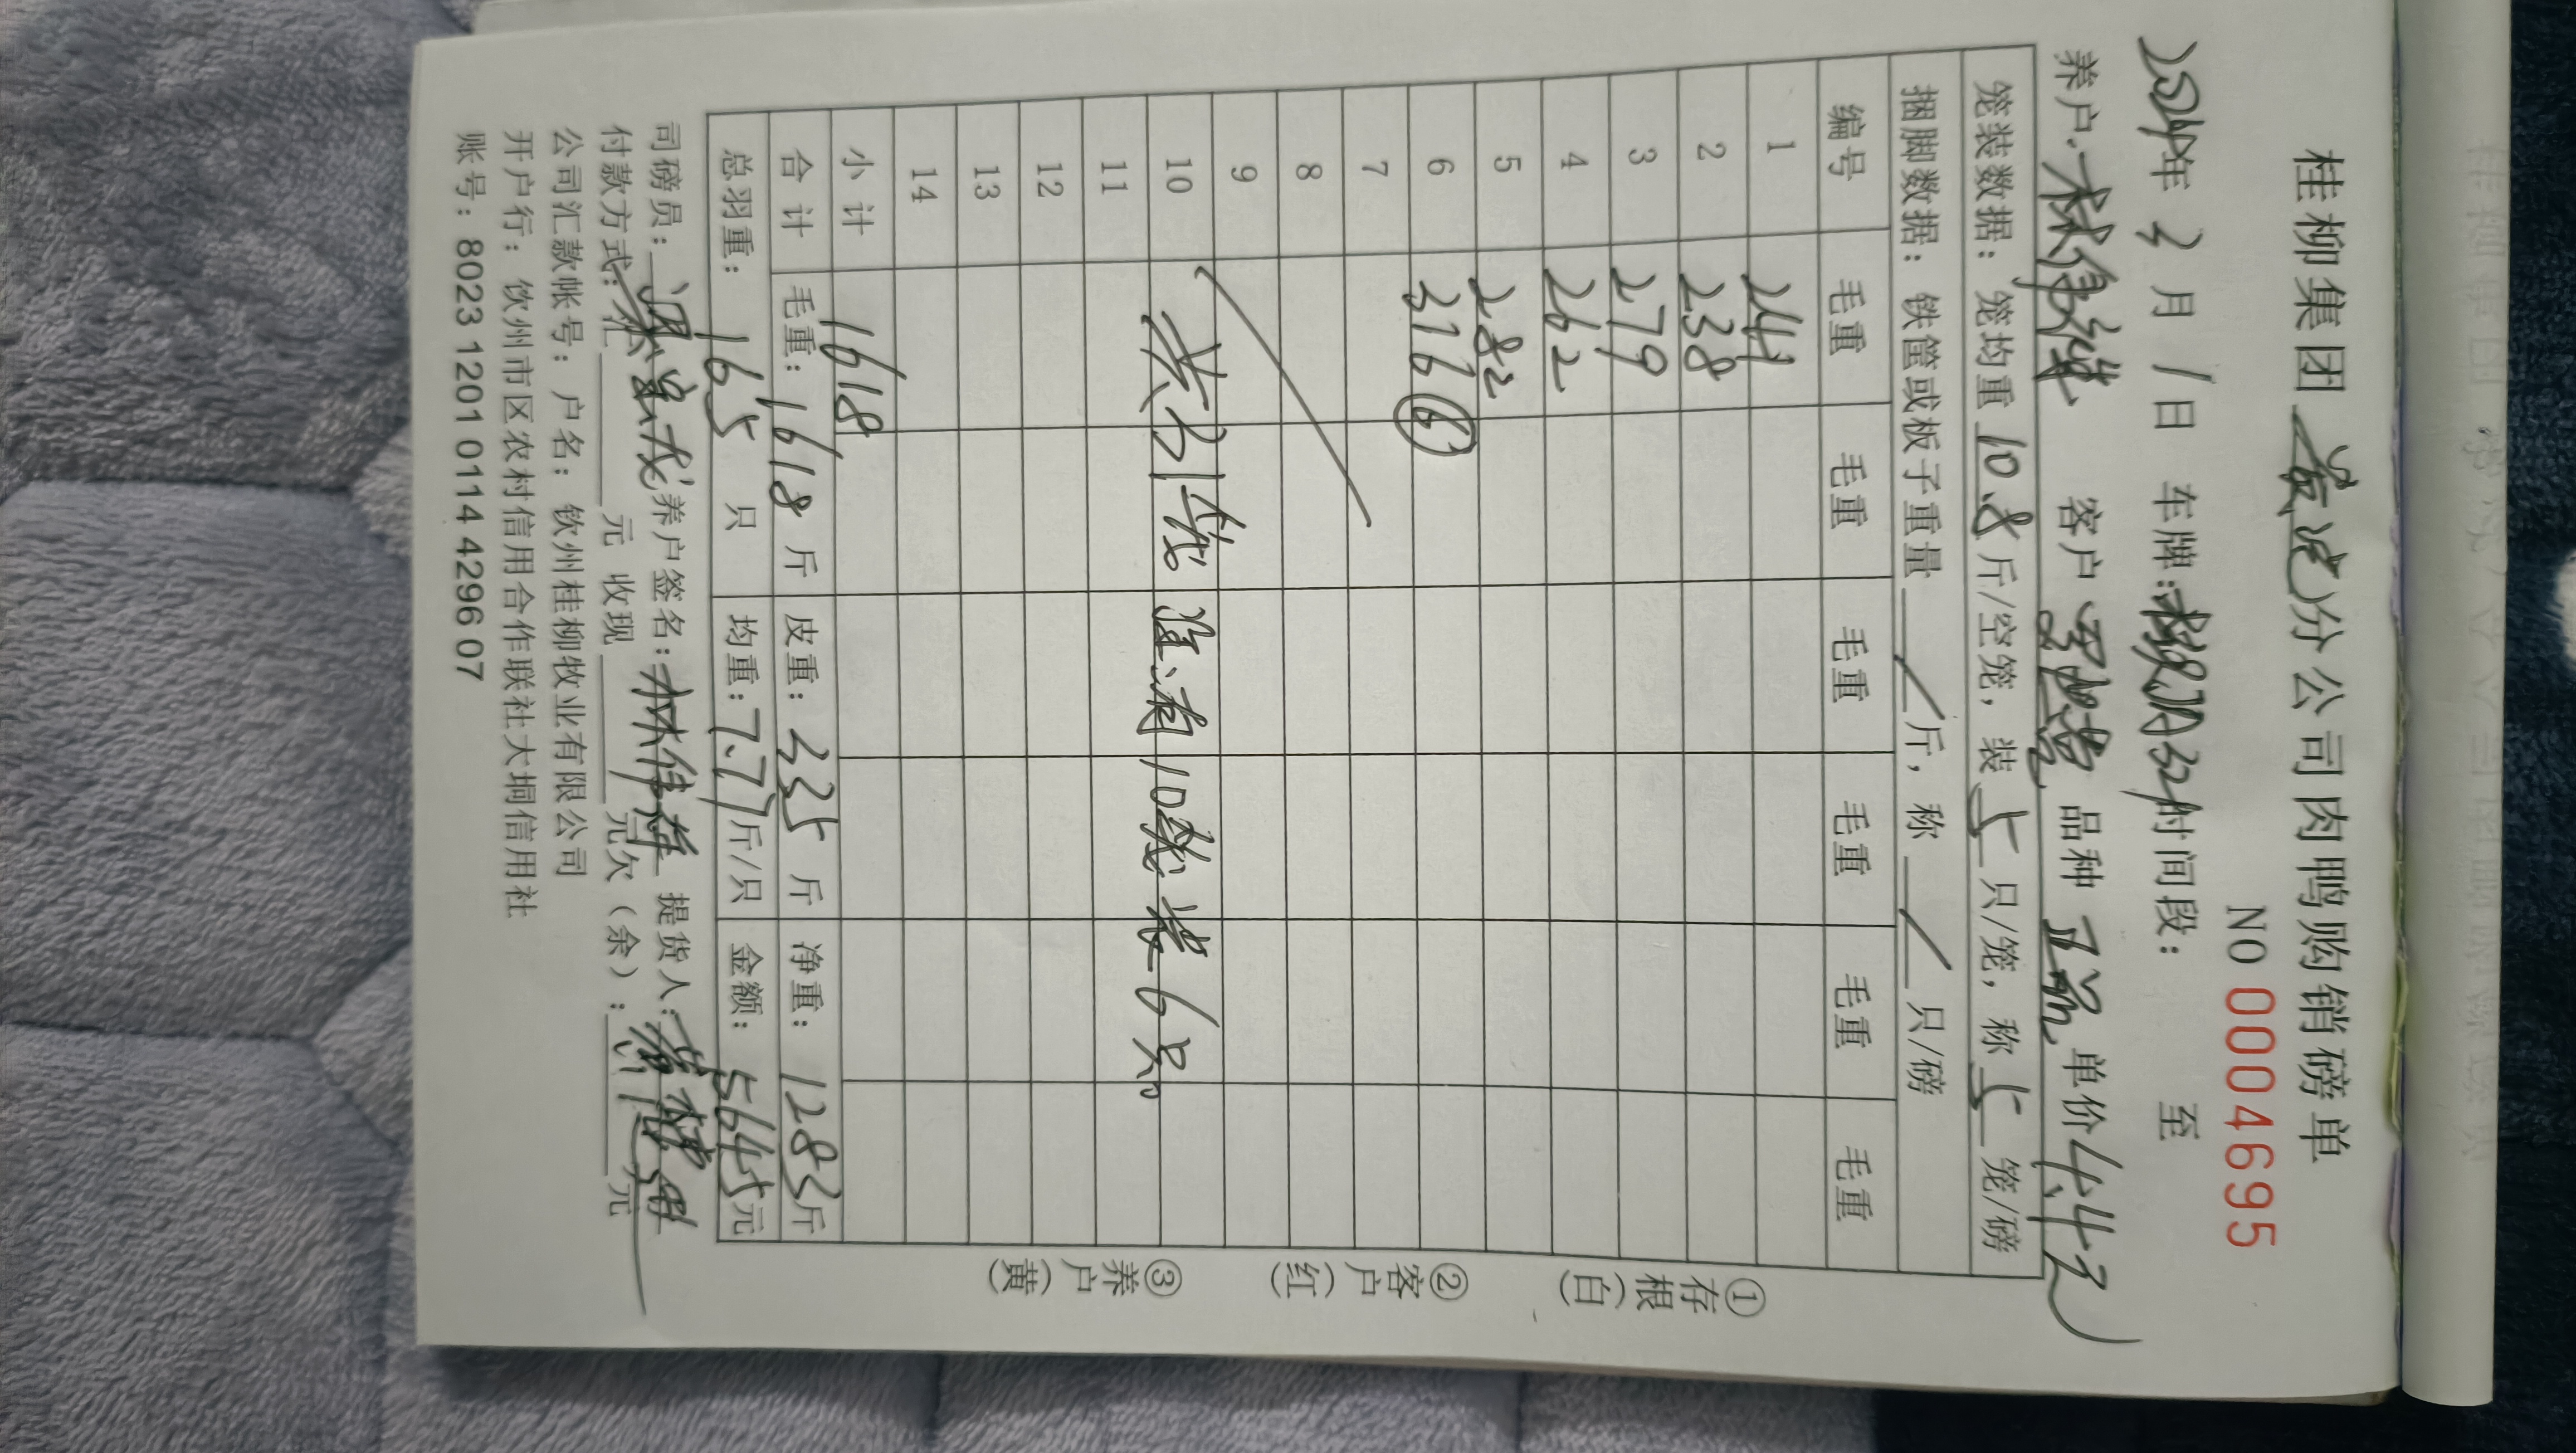 桂柳集团 分公司肉鸭购销磅单
NO 0004695
年 2 月 1 日 车牌: 时间段: 至
养户: 林伟雄 客户 品种 单价 4.4元
笼装数据: 笼均重 10.8 斤/空笼, 装 5 只/笼, 称 5 笼/磅
捆脚数据: 铁筐或板子重量 / 斤, 称 / 只/磅
编号 毛重 毛重 毛重 毛重 毛重 毛重
1 241
2 238
3 279
4 262
5 282
6 316 ⑥
7
8
9
10 共31笼 注:有10笼装6只。
11
12
13
14
小计 1618
合计 毛重: 1618 斤 皮重: 335 斤 净重: 1283 斤
总羽重: 165 只 均重: 7.77 斤/只 金额: 5645 元
司磅员: 养户签名: 林伟雄 提货人:
付款方式: 汇 元 收现 元欠(余): 元
公司汇款帐号: 户名: 钦州桂柳牧业有限公司
开户行: 钦州市区农村信用合作联社大垌信用社
账号: 8023 1201 0114 4296 07
①存根(白)
②客户(红)
③养户(黄)